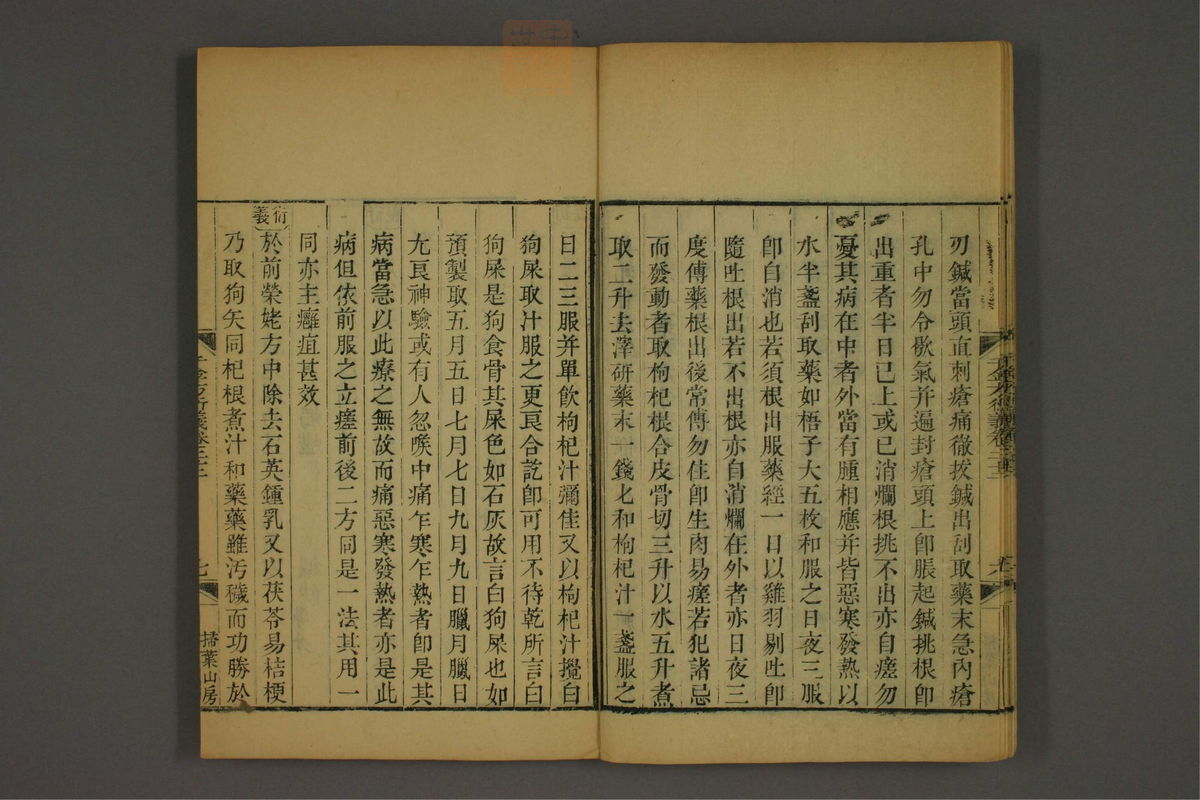 刃鍼當頭直刺瘡痛徹拔鍼出刮取藥末急內瘡
孔中勿令歇氣并遍封瘡頭上卽脹起鍼挑根卽
出重者半日已上或已消爛根挑不出亦自瘥勿
憂其病在中者外當有腫相應并皆惡寒發熱以
水半盞刮取藥如梧子大五枚和服之日夜三服
卽自消也若須根出服藥經一日以雞羽剔吐卽
隨吐根出若不出根亦自消爛在外者亦日夜三
度傅藥根出後常傅勿住卽生肉易瘥若犯諸忌
而發動者取枸杞根合皮骨切三升以水五升煮
取二升去滓研藥末一錢匕和枸杞汁一盞服之
日二三服并單飮枸杞汁彌佳又以枸杞汁攪白
狗屎取汁服之更良合訖卽可用不待乾所言白
狗屎是狗食骨其屎色如石灰故言白狗屎也如
預製取五月五日七月七日九月九日臘月臘日
尤良神驗或有人忽喉中痛乍寒乍熱者卽是其
病當急以此療之無故而痛惡寒發熱者亦是此
病但依前服之立瘥前後二方同是一法其用一
同亦主癰疽甚效
衍義
於前榮姥方中除去石英鍾乳又以茯苓易桔梗
乃取狗矢同杞根煮汁和藥藥雖汚穢而功勝於
千金方衍義卷二十二
七
掃葉山房